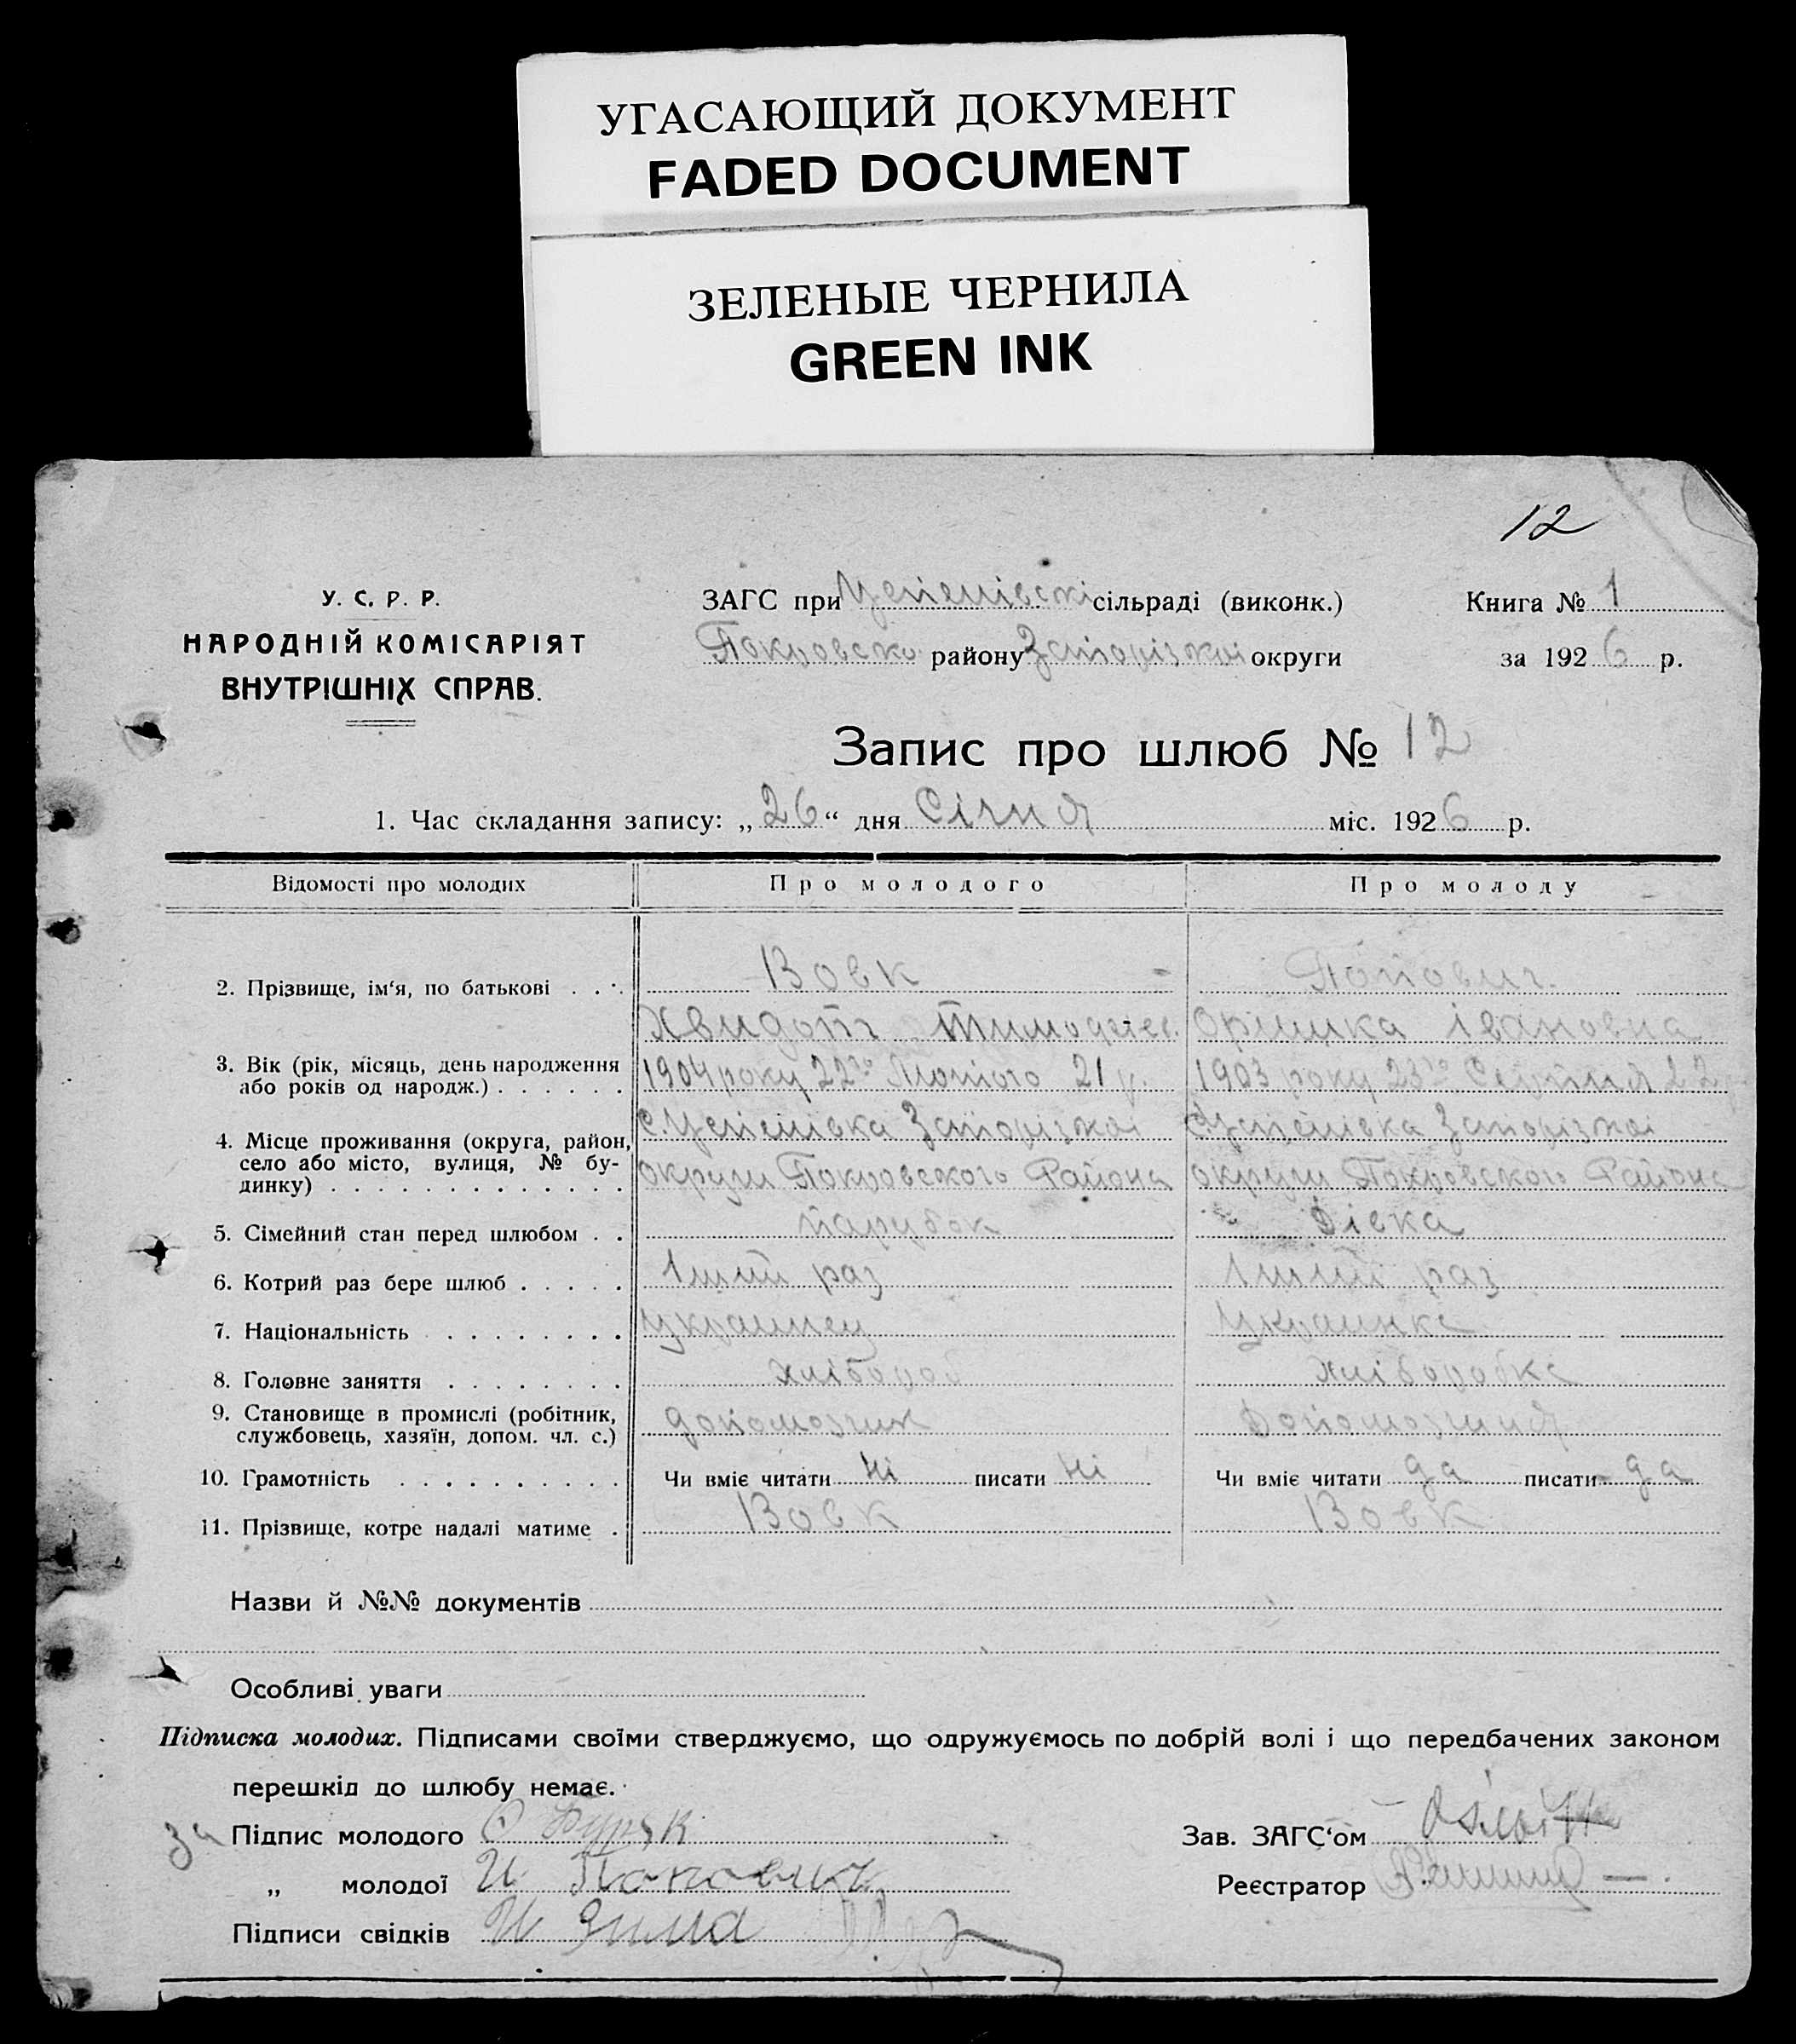 УГАСАЮЩИЙ ДОКУМЕНТ
FADED DOCUMENT
ЗЕЛЕНЫЕ ЧЕРНИЛА
GREEN INK
12
У. С. Р. Р.
НАРОДНІЙ КОМІСАРІЯТ
ВНУТРІШНІХ СПРАВ.
ЗАГС при Успенівскі сільраді (виконк.)
Покровско району Запорізкої округи
Книга № 1
за 1926 р.
Запис про шлюб № 12
1. Час складання запису: „26“ дня Січня міс. 1926 р.
Відомості про молодих Про молодого Про молоду
2. Прізвище, ім'я, по батькові Вовк Попович
Хвидот Тимофеев. Оришка Івановна
3. Вік (рік, місяць, день народження або років од народж.) 1904 року 22го Лютого 21 р. 1903 року 23го 22
4. Місце проживання (округа, район, село або місто, вулиця, № будинку) с. Успенівка Запорізкої с. Успенівка Запорізкої
округи Покровского Района округи Покровского Района
5. Сімейний стан перед шлюбом парубок Дівка
6. Котрий раз бере шлюб 1ший раз 1ший раз
7. Національність Украинец Украинка
8. Головне заняття хлібороб хліборобка
9. Становище в промислі (робітник, службовець, хазяїн, допом. чл. с.) допомозчик Допомозчиця
10. Грамотність Чи вміє читати ні писати ні Чи вміє читати да писати да
11. Прізвище, котре надалі матиме Вовк Вовк
Назви й №№ документів
Особливі уваги
Підписка молодих. Підписами своїми стверджуємо, що одружуємось по добрій волі і що передбачених законом
перешкід до шлюбу немає.
за Підпис молодого
Зав. ЗАГС'ом
„ молодої И Попович
Реєстратор
Підписи свідків И Зима